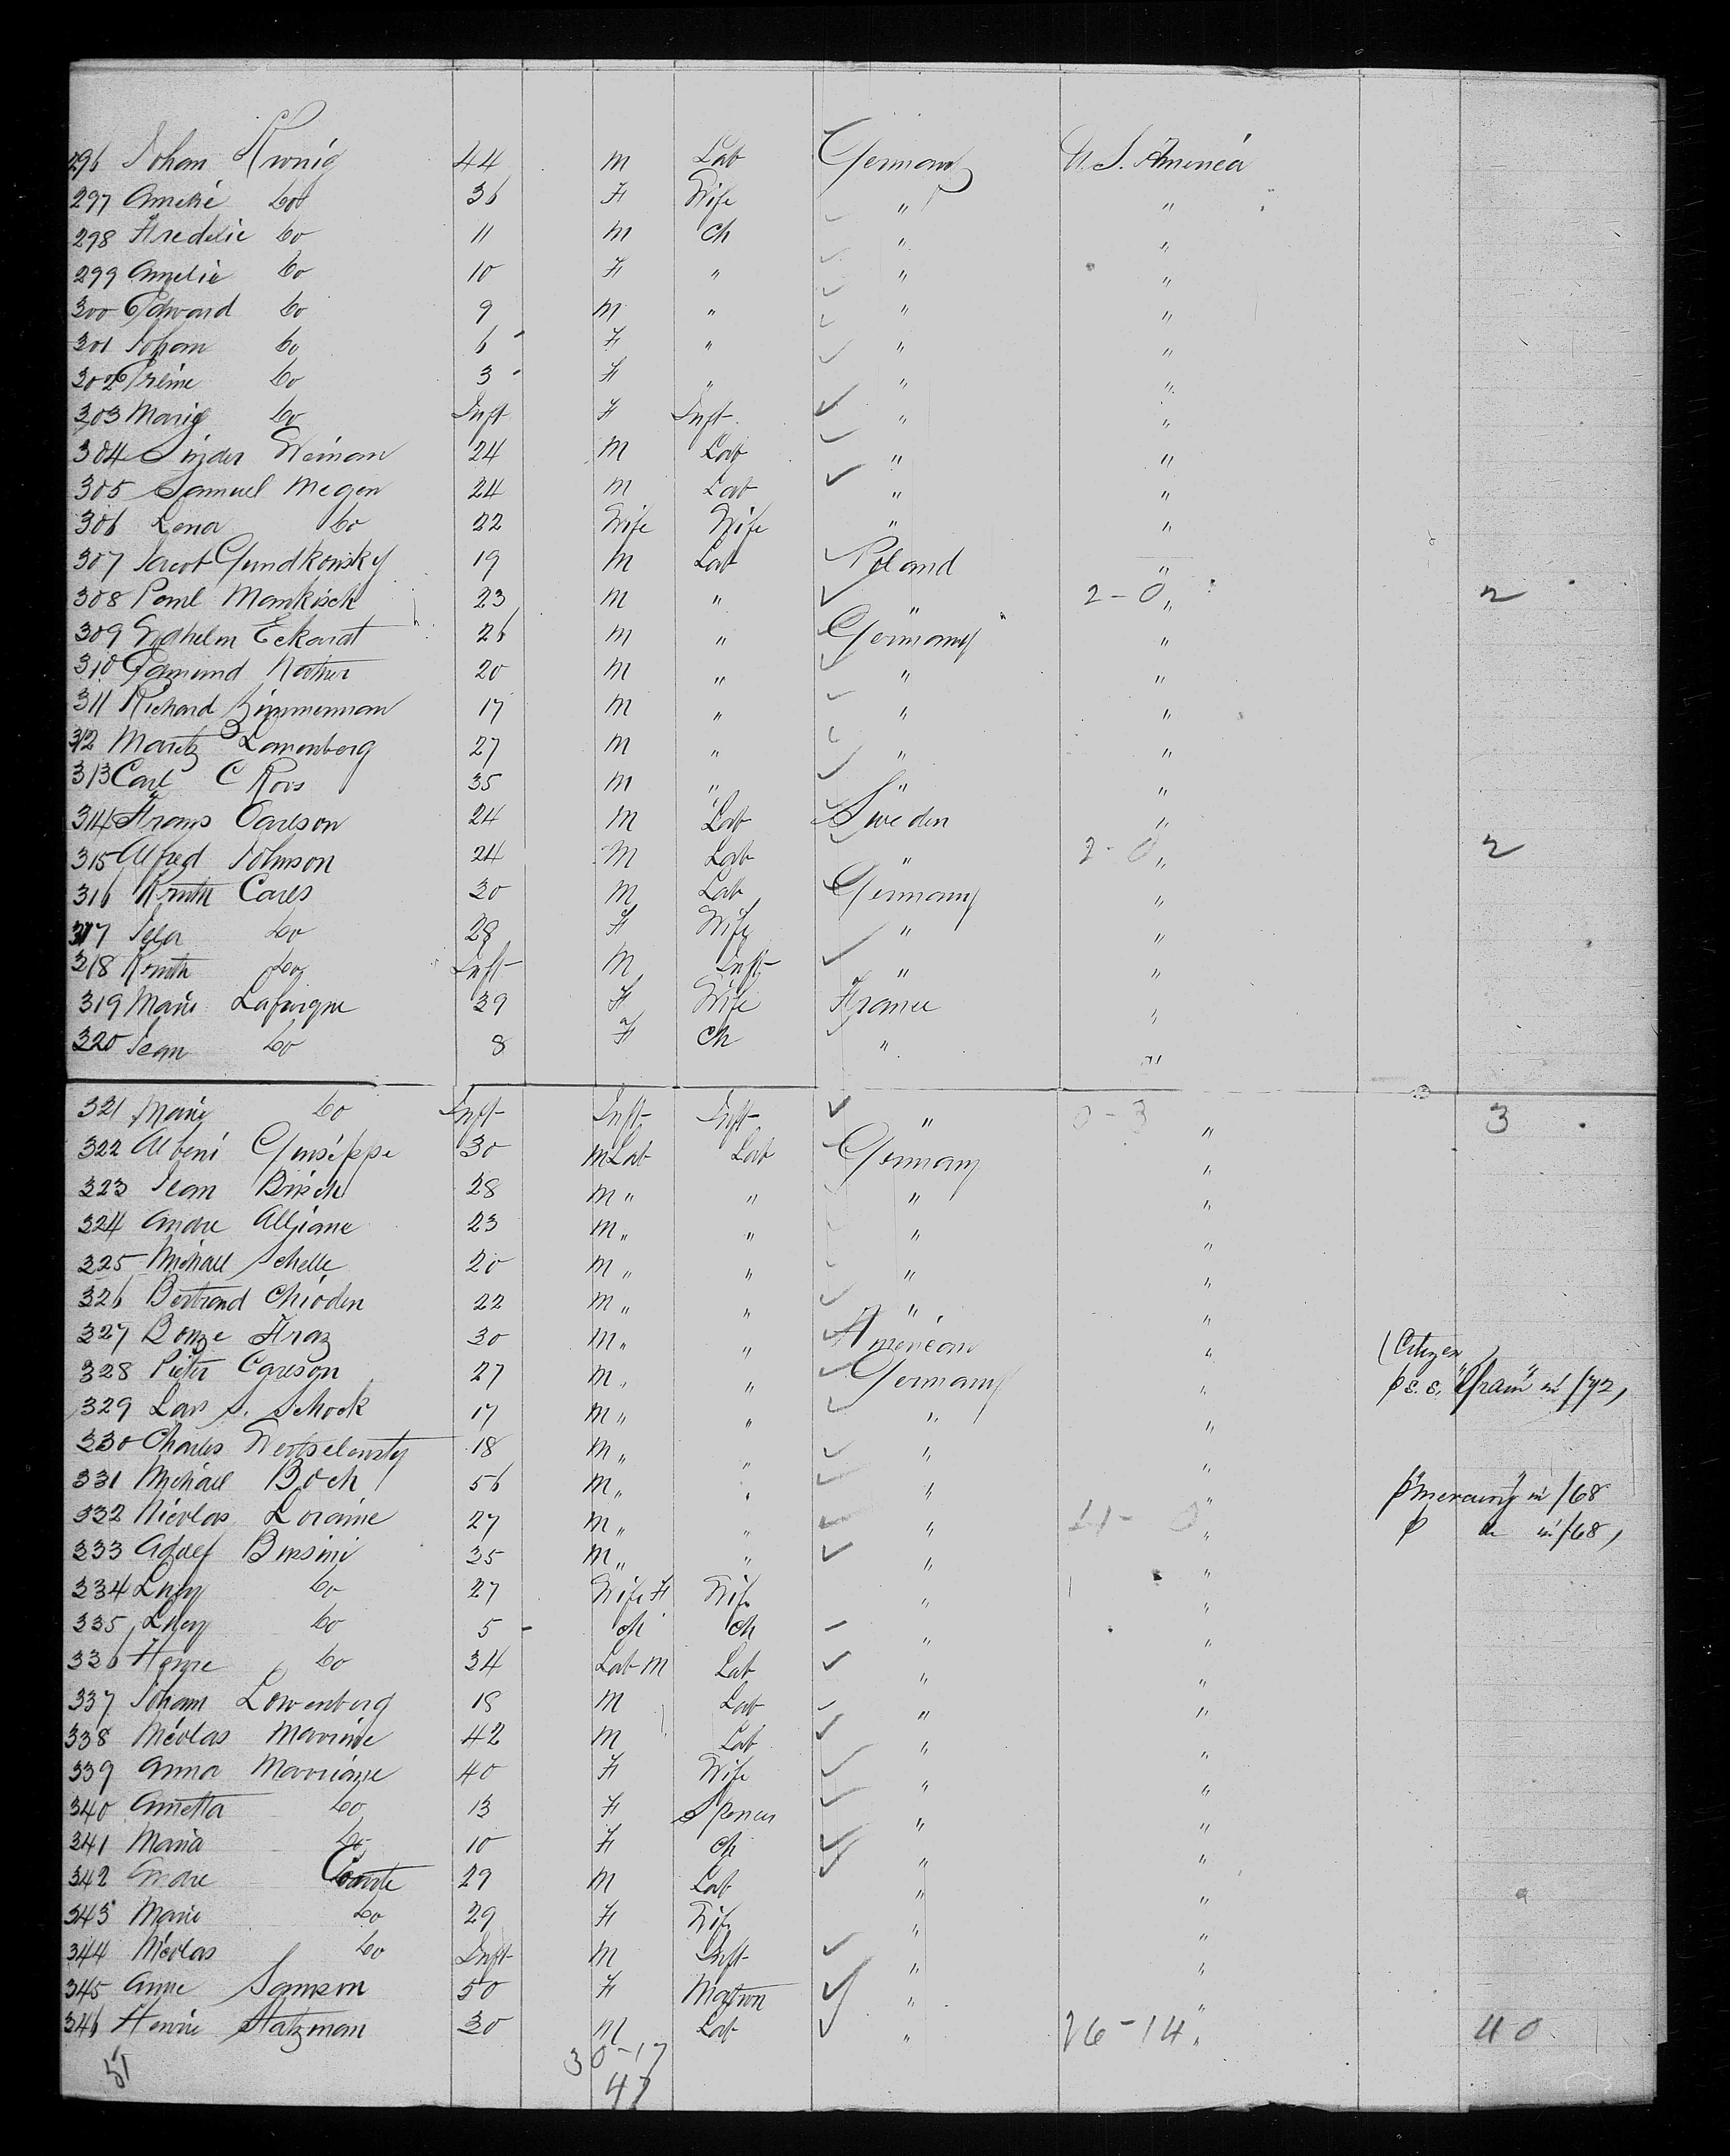 296 Johan Kronig 44 M Lab Germany U.S. America
297 Amelié Do 36 F Wife " "
298 Frederic Do 11 M Ch " "
299 Amelie Do 10 F " " "
300 Edward Do 9 M " " "
301 Johan Do 6 F " " "
302 Do 3 F " " "
303 Marie Do Inft F Inft " "
304 24 M Lab " "
305 Samuel Megen 24 M Lab " "
306 Lena Do 22 Wife Wife " "
307 19 M Lab Poland "
308 Paul Mankisch 23 M " " 2-0 " 2
309 Wilhelm Eckardt 26 M " Germany "
310 Edmund 20 M " " "
311 Richard Zimmerman 17 M " " "
312 Moritz Lamenberg 27 M " " "
313 Carl C Roos 35 M " " "
314 Frans Carlson 24 M Lab Sweden "
315 Alfred Johnson 24 M Lab " 2-0 " 2
316 Carls 30 M Lab Germany "
317 Do 28 F Wife " "
318 Do Inft M Inft " "
319 Marie 39 F Wife France "
320 Jean Do 8 F Ch " "
321 Marie Do Inft Inft Inft " 0-3 " 3
322 Albeni Guiseppe 30 M Lab Lab Germany "
323 Jean 28 M " " " "
324 Andre Alliane 23 M " " " "
325 Michael Schelle 20 M " " " "
326 Bertrand Chioden 22 M " " " "
327 30 M " " American " (Citizen
328 Pieter Carlson 27 M " " Germany " p s.s. in /72,
329 Lars S. Schock 17 M " " " "
330 Charles 18 M " " " "
331 Michael Boch 56 M " " " " p "Mercury" in /68
332 Nicolas Loraine 27 M " " " " p do in /68,
333 Adolf Bursini 35 M " " " "
334 Lucy Do 27 Wife F Wife " "
335 Lucy Do 5 Ch Ch " "
336 Do 34 Lab M Lab " "
337 Johann Lowenberg 18 M Lab " "
338 Nicolas 42 M Lab " "
339 Anna 40 F Wife " "
340 Annetta Do 13 F " "
341 Maria Do 10 F Ch " "
342 Andre Comte 29 M Lab " "
343 Marie Do 29 F Wife " "
344 Nicolas Do Inft M Inft " "
345 Anne Samson 50 F Matron " "
346 Henrie Statzman 30 M Lab " 26-14 " 40
51 30-17
47